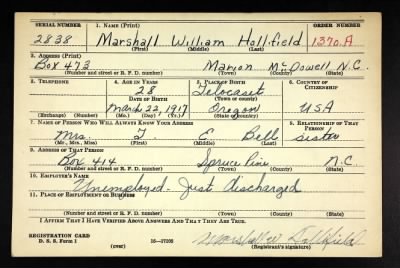 SERIAL NUMBER 1. NAME (Print) ORDER NUMBER
2838 Marshall William Hollifield 1370.A
(First) (Middle) (Last)
2. ADDRESS (Print)
Box 473 Marion McDowell N.C.
(Number and street or R. F. D. number) (Town) (County) (State)
3. TELEPHONE 4. AGE IN YEARS 5. PLACE OF BIRTH 6. COUNTRY OF CITIZENSHIP
28 Telocaset
DATE OF BIRTH (Town or county)
March 22, 1917 Oregon USA
(Exchange) (Number) (Mo.) (Day) (Yr.) (State or country)
7. NAME OF PERSON WHO WILL ALWAYS KNOW YOUR ADDRESS 8. RELATIONSHIP OF THAT PERSON
Mrs. T E Bell sister
(Mr., Mrs., Miss) (First) (Middle) (Last)
9. ADDRESS OF THAT PERSON
Box 414 Spruce Pine N.C.
(Number and street or R. F. D. number) (Town) (County) (State)
10. EMPLOYER'S NAME
Unemployed - Just Discharged
11. PLACE OF EMPLOYMENT OR BUSINESS
(Number and street or R. F. D. number) (Town) (County) (State)
I AFFIRM THAT I HAVE VERIFIED ABOVE ANSWERS AND THAT THEY ARE TRUE.
REGISTRATION CARD
D. S. S. Form 1 (over) 16—17105 Marshall W Hollifield
(Registrant's signature)